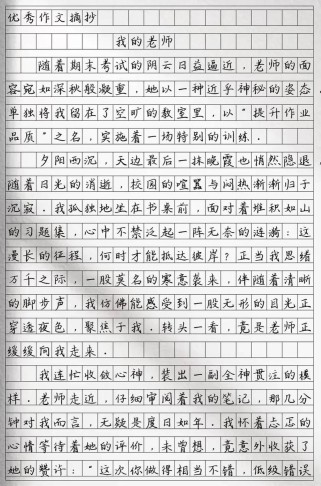 优秀作文摘抄
我的老师
随着期末考试的阴云日益逼近，老师的面
容宛如深秋般凝重，她以一种近乎神秘的姿态，
单独将我留在了空旷的教室里，以“提升作业
品质”之名，实施着一场特别的训练．
夕阳西沉，天边最后一抹晚霞也悄然隐退，
随着日光的消逝，校园的喧嚣与闷热渐渐归于
沉寂．我孤独地坐在书桌前，面对着堆积如山
的习题集，心中不禁泛起一阵无奈的涟漪：这
漫长的征程，何时才能抵达彼岸？正当我思绪
万千之际，一股莫名的寒意袭来，伴随着清晰
的脚步声，我仿佛能感受到一股无形的目光正
穿透夜色，聚焦于我．转头一看，竟是老师正
缓缓向我走来．
我连忙收敛心神，装出一副全神贯注的模
样．老师走近，仔细审阅着我的笔记，那几分
钟对我而言，无疑是度日如年．我怀着忐忑的
心情等待着她的评价，未曾想，竟意外收获了
她的赞许：“这次你做得相当不错，低级错误